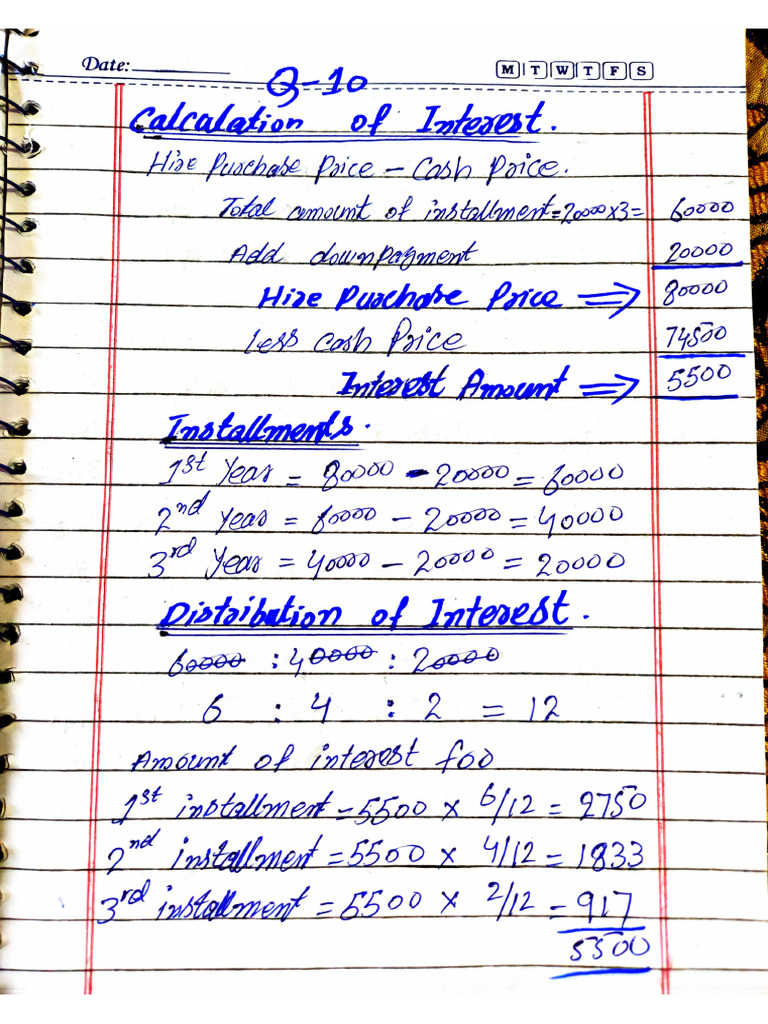 Date:
M T W T F S
Q-10
Calculation of Interest.
Hire Purchase Price - Cash Price.
Total amount of installment = 20000 x 3 = 60000
Add downpayment 20000
Hire Purchase Price ⇒ 80000
Less Cash Price 74500
Interest Amount ⇒ 5500
Installments.
1st Year = 80000 - 20000 = 60000
2nd Year = 60000 - 20000 = 40000
3rd Year = 40000 - 20000 = 20000
Distribution of Interest.
60000 : 40000 : 20000
6 : 4 : 2 = 12
Amount of interest foo
1st installment = 5500 x 6/12 = 2750
2nd installment = 5500 x 4/12 = 1833
3rd installment = 5500 x 2/12 = 917
5500